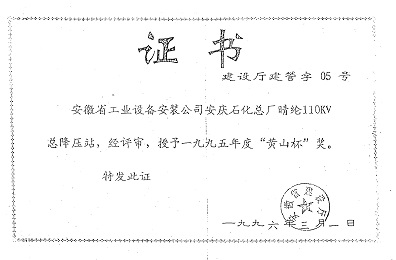 证书
建设厅建管字 05 号
安徽省工业设备安装公司安庆石化总厂腈纶110KV
总降压站，经评审，授予一九九五年度“黄山杯”奖。
特发此证
安徽省建设厅
一九九六年三月一日